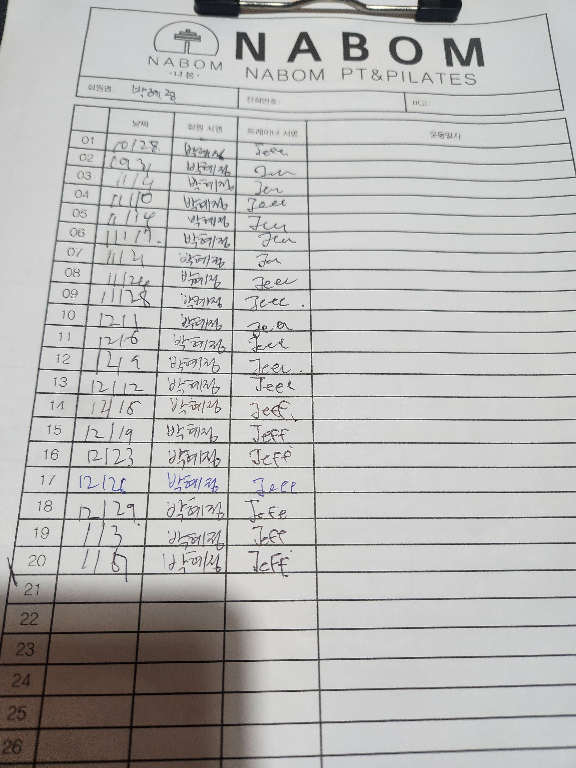 NABOM
NABOM
-나봄-
NABOM PT&PILATES
회원명: 박혜정 전화번호: 비고:
날짜 회원 서명 트레이너 서명 운동일지
01 10/28 박혜정 Jeff
02 박혜정 Jeff
03 박혜정 Jeff
04 11/10 박혜정 Jeff
05 11/14 박혜정 Jeff
06 11/17. 박혜정 Jeff
07 박혜정 Jeff
08 11/24 박혜정 Jeff
09 11/28 박혜정 Jeff.
10 12/1 박혜정 Jeff
11 12/6 박혜정 Jeff
12 12/9 박혜정 Jeff.
13 12/12 박혜정 Jeff
14 12/16 박혜정 Jeff
15 12/19 박혜정 Jeff
16 12/23 박혜정 Jeff
17 12/26 박혜정 Jeff
18 12/29 박혜정 Jeff
19 1/3 박혜정 Jeff
20 박혜정 Jeff
21
22
23
24
25
26